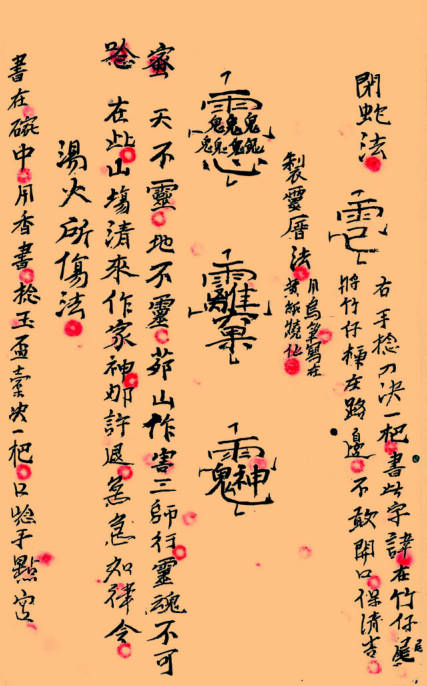 閉蛇法
右手捻刀決一把書此字諱在竹仔尾
將竹仔插在路邊不敢開口保清吉
製靈厝法
用烏筆寫在
黃紙燒化
蜜
唸
天不靈地不靈茆山作害三師行靈魂不可
在此山塲清來作家神邪許退急急如律令
湯火所傷法
書在碗中用香書捻玉盃素決一把口唸手點